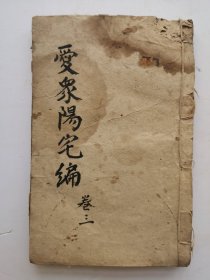 愛衆陽宅編
卷三